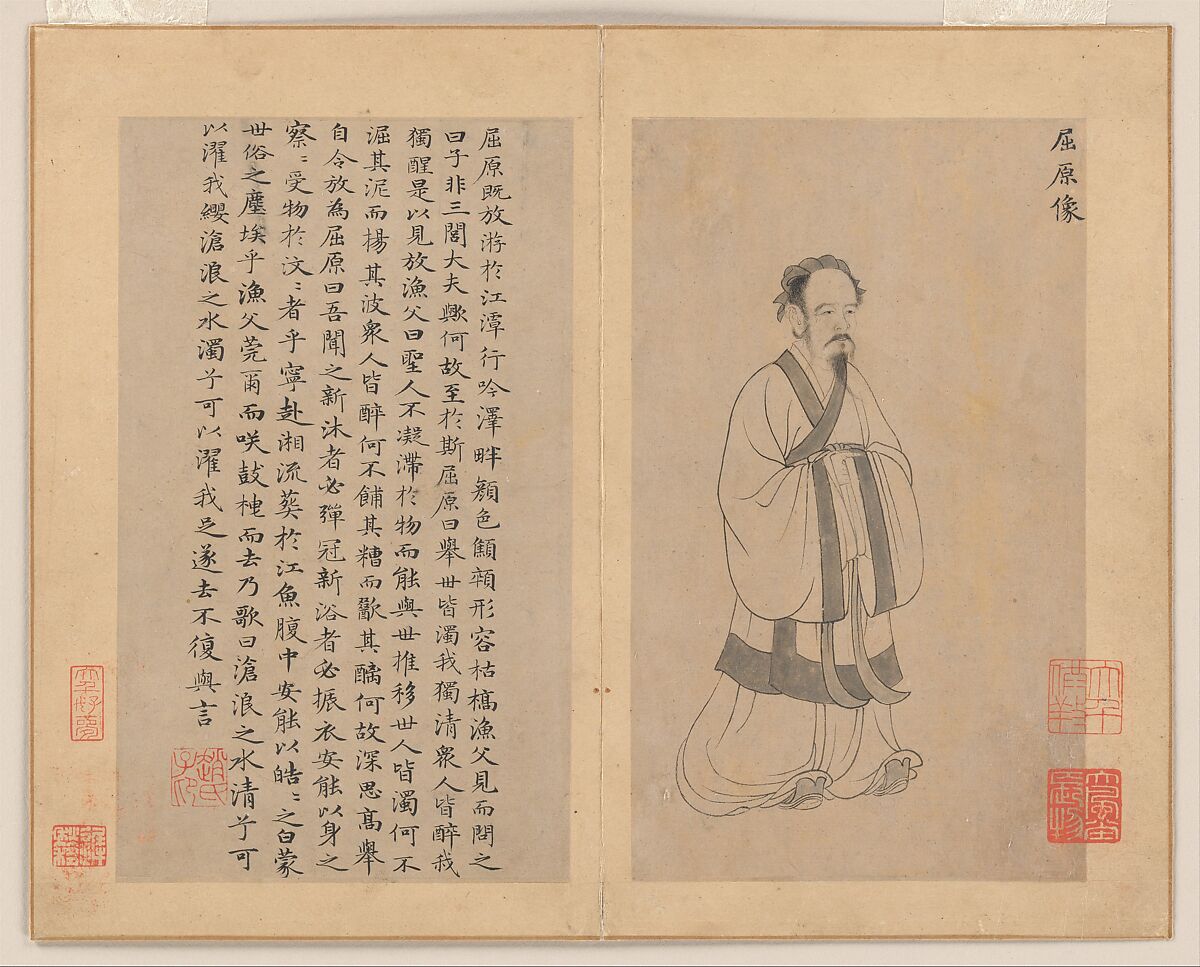 屈原像
屈原既放游於江潭行吟澤畔顔色顦顇形容枯槁漁父見而問之
曰子非三閭大夫歟何故至於斯屈原曰舉世皆濁我獨清衆人皆醉我
獨醒是以見放漁父曰聖人不凝滯於物而能與世推移世人皆濁何不
淈其泥而揚其波衆人皆醉何不餔其糟而歠其醨何故深思髙舉
自令放為屈原曰吾聞之新沐者必彈冠新浴者必振衣安能以身之
察〻受物於汶〻者乎寧赴湘流葬於江魚腹中安能以皓〻之白蒙
世俗之塵埃乎漁父莞爾而咲鼓枻而去乃歌曰滄浪之水清兮可
以濯我纓滄浪之水濁兮可以濯我足遂去不復與言
趙氏子昂